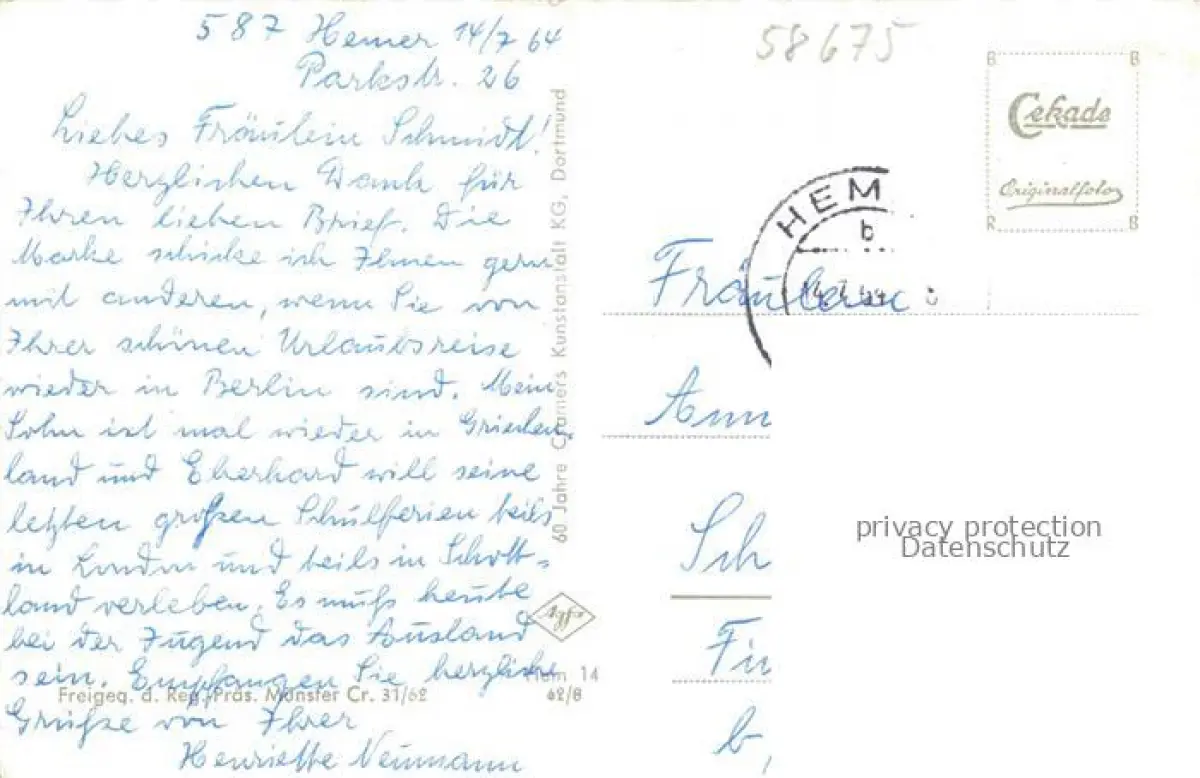 587 Hemer 14/7 64
Parkstr. 26
Liebes Fräulein Schmidt!
Herzlichen Dank für
Ihren lieben Brief. Die
Marke schicke ich Ihnen gern
mit anderen, wenn Sie von
Ihrer schönen Urlaubsreise
wieder in Berlin sind. Mein
Sohn ist mal wieder in Griechen-
land und Eberhard will seine
letzten großen Schulferien teils
in London und teils in Schott-
land verleben. Es muß heute
bei der Jugend das Ausland
sein. Empfangen Sie herzliche
Grüße von Ihrer
Henriette Neumann
60 Jahre Cramers Kunstanstalt KG, Dortmund
Agfa
Hem 14
Freigeg. d. Reg. Präs. Münster Cr. 31/62
62/8
58675
Cekade
Originalfoto
HEM
b
Fräulein
Ann
Sch
Fi
b,
privacy protection
Datenschutz